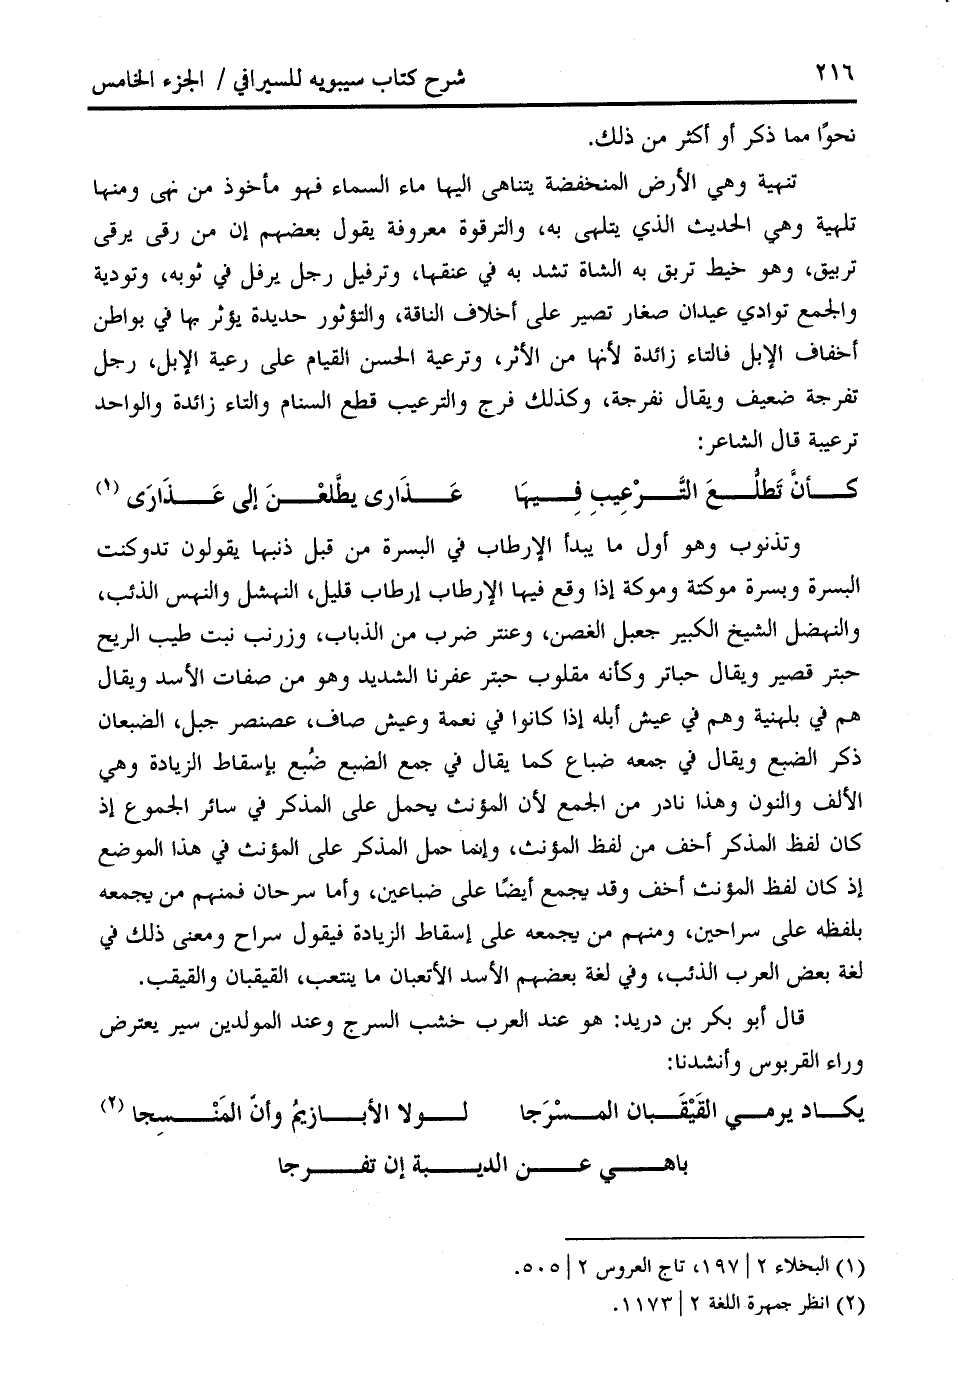 ٢١٦
شرح كتاب سيبويه للسيرافي / الجزء الخامس
نحوًا مما ذكر أو أكثر من ذلك.
تنهية وهي الأرض المنخفضة يتناهى اليها ماء السماء فهو مأخوذ من نهى ومنها
تلهية وهي الحديث الذي يتلهى به، والترقوة معروفة يقول بعضهم إن من رقى يرقى
تربيق، وهو خيط تربق به الشاة تشد به في عنقها، وترفيل رجل يرفل في ثوبه، وتودية
والجمع توادي عيدان صغار تصير على أخلاف الناقة، والتؤثور حديدة يؤثر بها في بواطن
أخفاف الإبل فالتاء زائدة لأنها من الأثر، وترعية الحسن القيام على رعية الإبل، رجل
تفرجة ضعيف ويقال نفرجة، وكذلك فرج والترعيب قطع السنام والتاء زائدة والواحد
ترعيبة قال الشاعر:
كــأنَّ تَطلُّــعَ التَّــرْعِيبِ فِــيهَا عَــذَارى يطَّلعْــنَ إلى عَــذَارَى (١)
وتذنوب وهو أول ما يبدأ الإرطاب في البسرة من قبل ذنبها يقولون تدوكنت
البسرة وبسرة موكتة وموكة إذا وقع فيها الإرطاب إرطاب قليل، النهشل والنهس الذئب،
والنهضل الشيخ الكبير جعبل الغصن، وعنتر ضرب من الذباب، وزرنب نبت طيب الريح
حبتر قصير ويقال حباتر وكأنه مقلوب حبتر عفرنا الشديد وهو من صفات الأسد ويقال
هم في بلهنية وهم في عيش أبله إذا كانوا في نعمة وعيش صاف، عصنصر جبل، الضبعان
ذكر الضبع ويقال في جمعه ضباع كما يقال في جمع الضبع ضُبع بإسقاط الزيادة وهي
الألف والنون وهذا نادر من الجمع لأن المؤنث يحمل على المذكر في سائر الجموع إذ
كان لفظ المذكر أخف من لفظ المؤنث، وإنما حمل المذكر على المؤنث في هذا الموضع
إذ كان لفظ المؤنث أخف وقد يجمع أيضًا على ضباعين، وأما سرحان فمنهم من يجمعه
بلفظه على سراحين، ومنهم من يجمعه على إسقاط الزيادة فيقول سراح ومعنى ذلك في
لغة بعض العرب الذئب، وفي لغة بعضهم الأسد الأتعبان ما ينتعب، القيقبان والقيقب.
قال أبو بكر بن دريد: هو عند العرب خشب السرج وعند المولدين سير يعترض
وراء القربوس وأنشدنا:
يكــاد يرمــي القَيْقَــبان المــسْرَجا لــولا الأبــازيمُ وأنّ المَنْــسِجا (٢)
باهــي عــن الديــبة إن تفــرجا
(١) البخلاء ٢ | ١٩٧، تاج العروس ٢ | ٥٠٥.
(٢) انظر جمهرة اللغة ٢ | ١١٧٣.